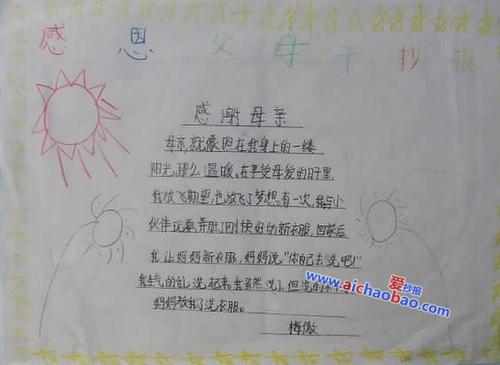 感恩父母手抄报
感谢母亲
母亲,就像照在我身上的一缕
阳光,那么温暖。在享受母爱的日子里,
我放飞勤里,也放飞了梦想。有一次,我与小
伙伴玩耍,弄脏了刚换好的新衣服,回家后
我让妈妈新衣服,妈妈说:"你自己去洗吧!"
我生气的 洗起来,我虽然洗了,但洗的不
妈妈教我了洗衣服。
梅傲
爱抄报
www.aichaobao.com